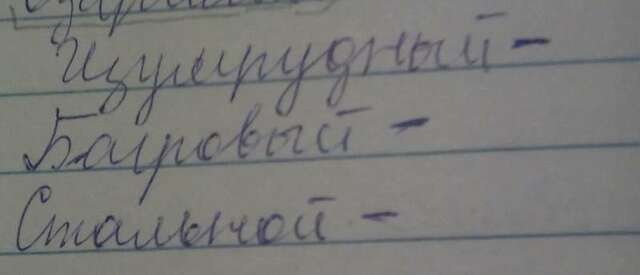 Изумрудный -
Багровый -
Стальной -